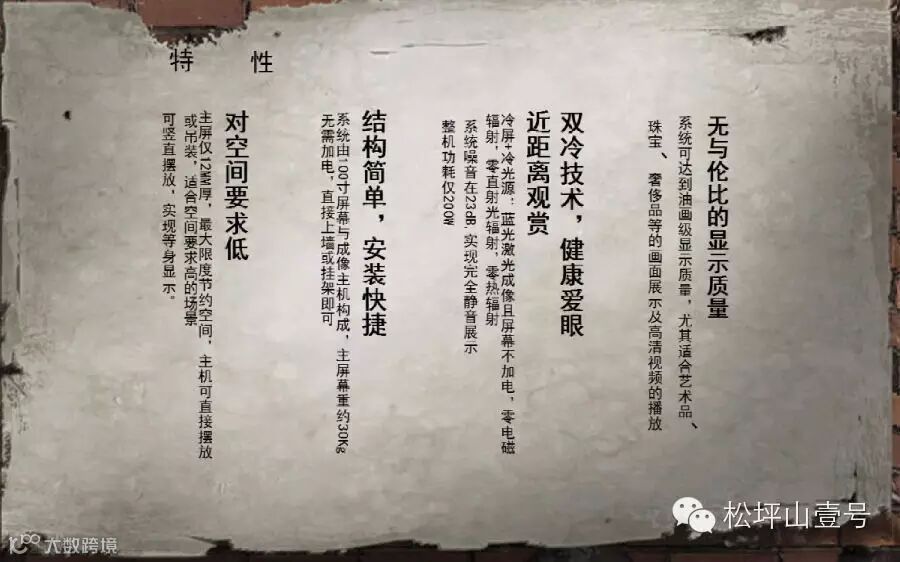 特 性
无与伦比的显示质量
系统可达到油画级显示质量，尤其适合艺术品、
珠宝、奢侈品等的画面展示及高清视频的播放
双冷技术，健康爱眼
近距离观赏
冷屏+冷光源：蓝光激光成像且屏幕不加电，零电磁
辐射，零直射光辐射，零热辐射
系统噪音在23dB，实现完全静音展示
整机功耗仅200W
结构简单，安装快捷
系统由100寸屏幕与成像主机构成，主屏幕重约30Kg
无需加电，直接上墙或挂架即可
对空间要求低
主屏仅12MM厚，最大限度节约空间，主机可直接摆放
或吊装，适合空间要求高的场景
可竖直摆放，实现等身显示。
松坪山壹号
大数跨境